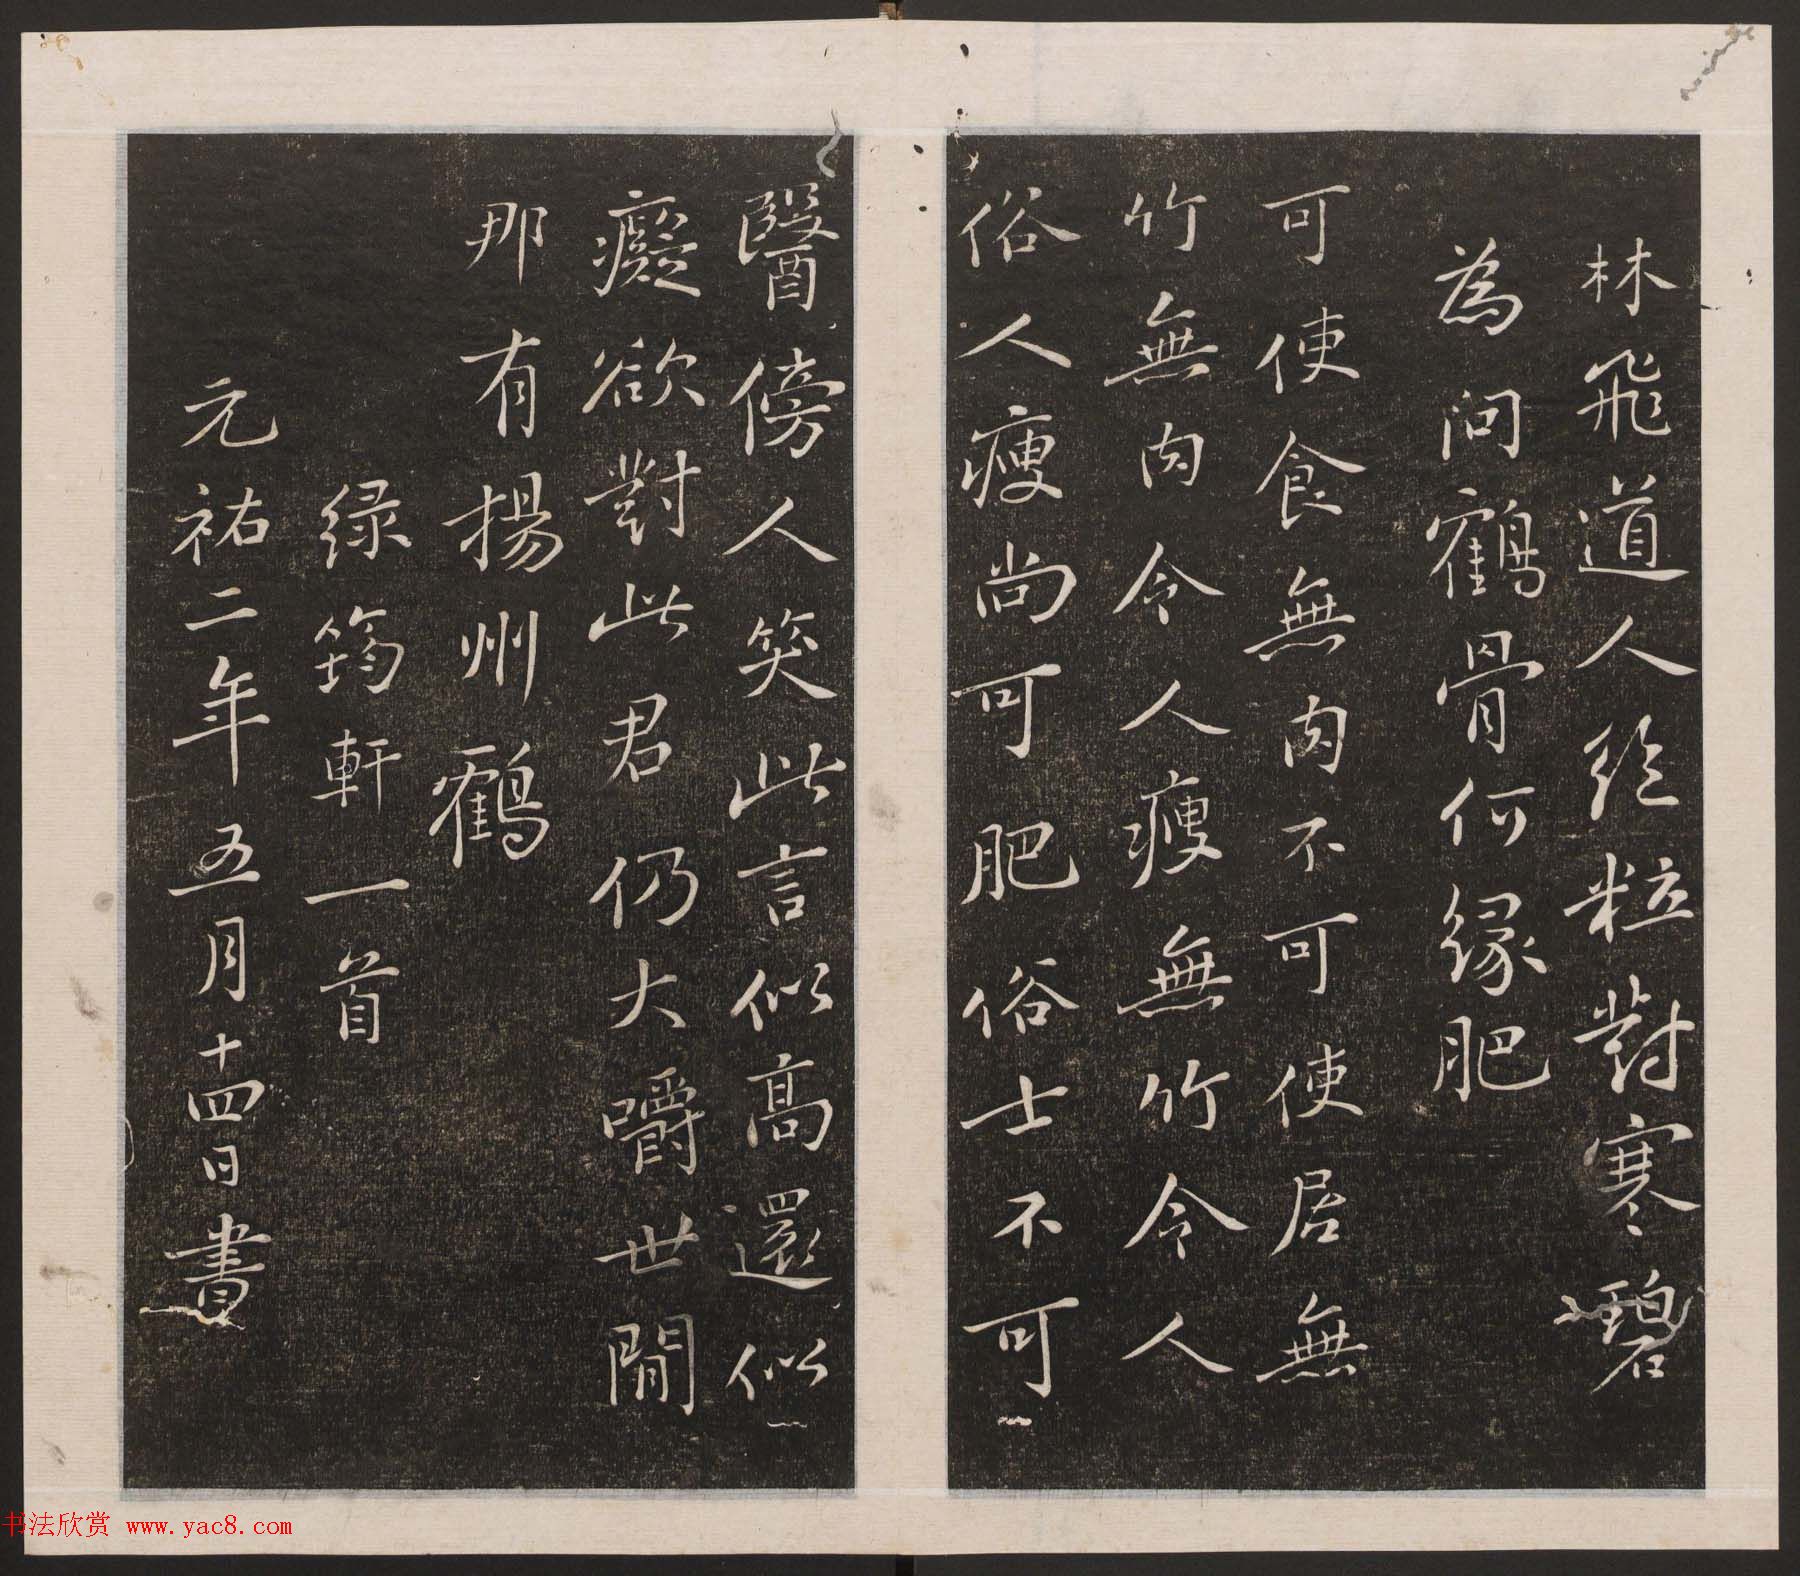 林飛道人終粒對寒碧
為問鶴骨何緣肥
可使食無肉不可使居無
竹無肉令人瘦無竹令人
俗人瘦尚可肥俗士不可
醫傍人笑此言似高還似
癡欲對此君仍大嚼世間
那有揚州鶴
緑筠軒一首
元祐二年五月十四日書
书法欣赏 www.yac8.com